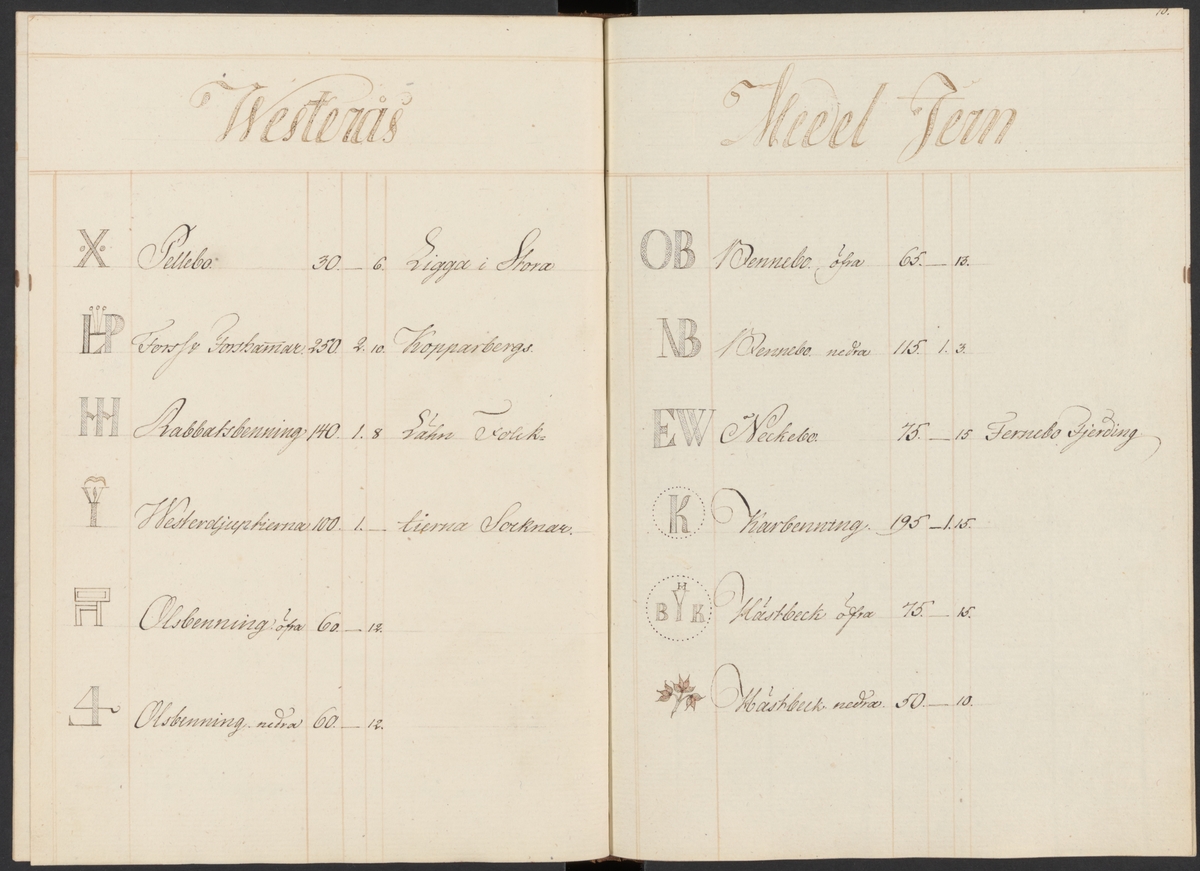 10.
Westerås
X Pellebo. 30. — 6. Ligga i Stora
HP Forss & Forsham̄ar. 250. 2. 10. Kopparbergs.
Rabbatsbenning 140. 1. 8 Lähn Folck=
Westerdjupkierna 100. 1. — kierna Socknar.
Olsbenning öfra 60. — 12.
4 Olsbenning nedra 60. — 12.
Medel Jern
OB Bennebo öfra 65. — 13.
NB Bennebo nedra 115. 1. 3.
EW Neckebo. 75. — 15 Fernebo Fjerding
K Karbenning. 195 — 1. 15.
H BYK Hästbeck öfra 75. — 15.
Hästbeck nedra. 50. — 10.